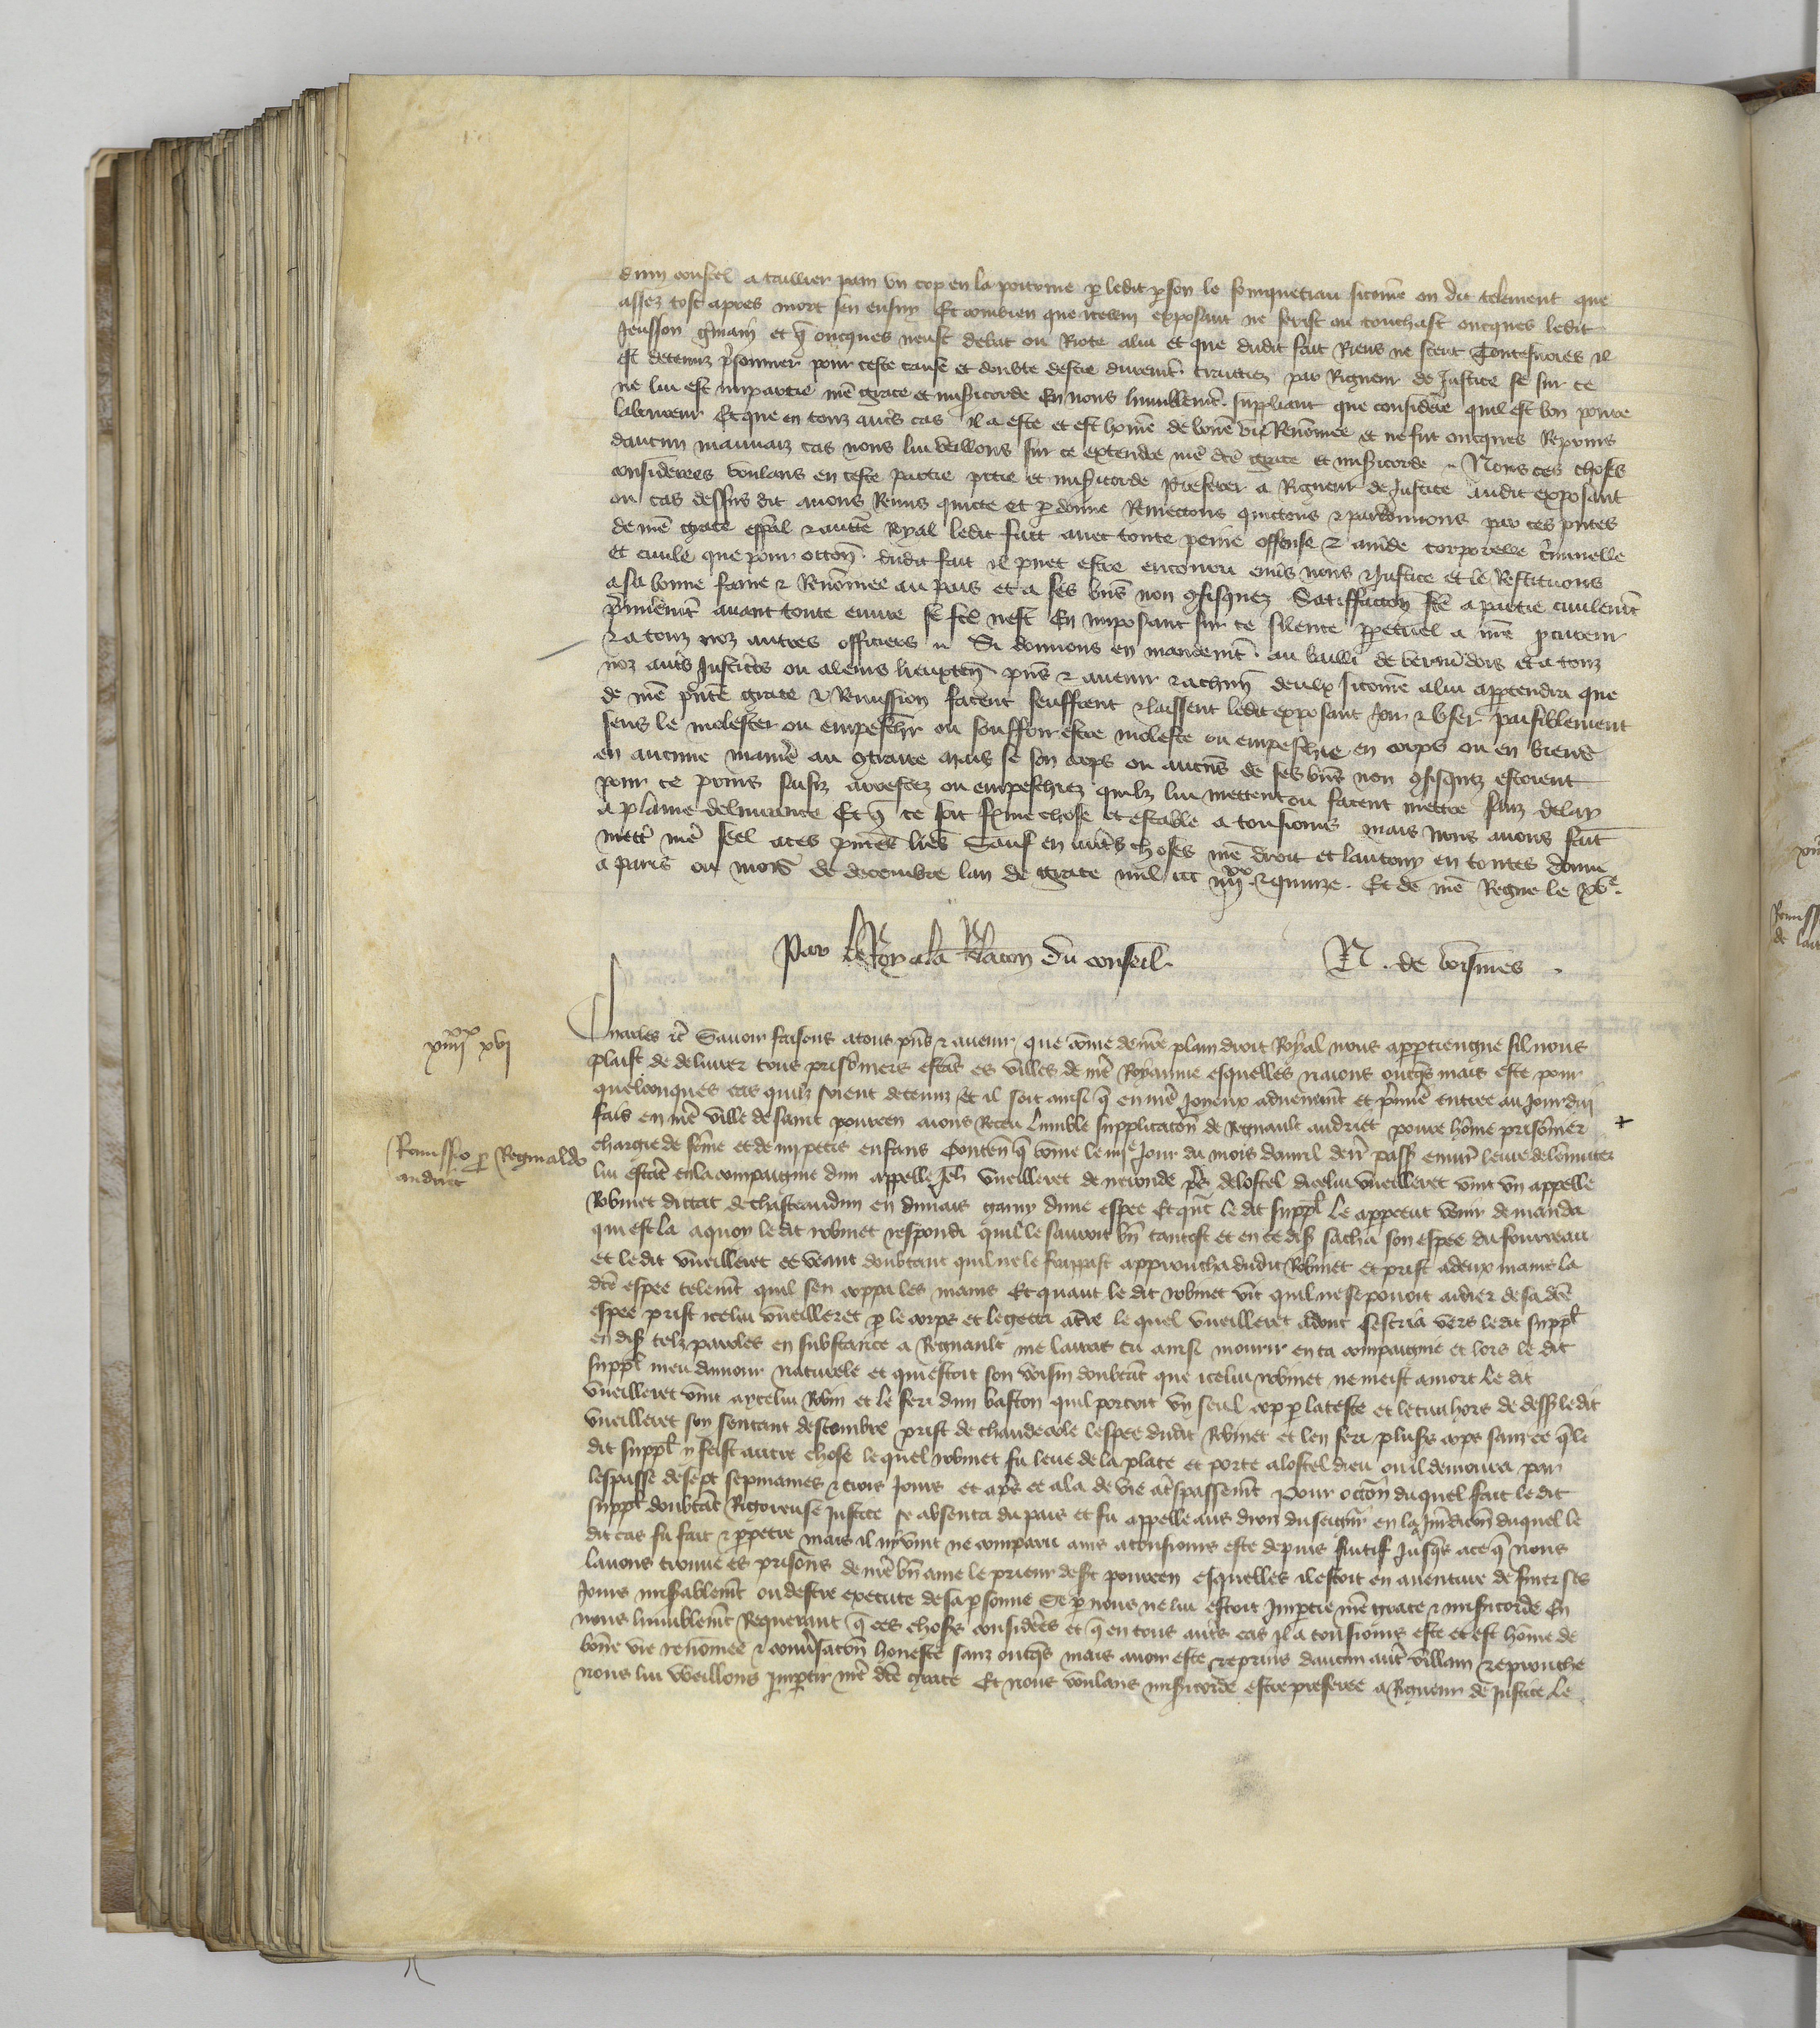 dun coustel a taillier pain un cop en la poitrine p ledit pson le sonquetiau sicome on dit telement que
assez tost apres mort sen ensuy Et combien que icelui exposant ne ferist ou touchast oncques ledit
Jensson gmain et q oncques neust debat ou Riote alui et que dudit fait Riens ne sceut Toutesvoies il
est detenuz prisonnier pour ceste cause et doubte destre durement traittiez par Rigueur de Justice se sur ce
ne lui est impartie nre grace et misericorde En nous humblemt suppliant que considere quil est bon povre
laboureur Et que en touz autres cas il a este et est home de bone vie Renomee et ne fut oncques Repris
daucun mauvaiz cas nous lui veillons sur ce extendre nre dte grace et misericorde Nous ces choses
considerees voulans en ceste partie pitie et misericorde preferer a Rigueur de Justice audit exposant
ou cas dessus dit avons Remis quicte et pdonne Remectons quictons & pardonnons par ces pntes
de nre grace espal & auttre Royal ledit fait avec toute peine offense & amde corporelle criminelle
et civile que pour occon dudit fait il puet estre encouru envs nous & Justice et le Restituons
a sa bonne fame & Renomee au pais et a ses bns non gfisquez Satisfaction fte a partie civilemt
primieremt avant toute euvre se fte nest En imposant sur ce silence ppetuel a nre pcureur
& a touz noz autres officiers Si donnons en mandemt au bailli de vermdois et a touz
noz autres Justiciers ou aleurs lieuxten pns & avenir & achun deulx sicome alui apptendra que
de nre pnte grace & Remission facent seuffrent & laissent ledit exposant Joir & User paisiblement
sens le molester ou empeschr ou souffrir estre moleste ou empeschie en corps ou en biens
en aucune maniere au gtraire mais se son corps ou aucuns de ses bns non gfisquez estoient
pour ce prins saisiz arrestez ou empeschiez quilz lui mettent ou facent mettre sanz delay
a plaine delivrance Et q ce soit ferme chose et estable a tousiours mais Nous avons fait
mettre nre seel aces pntes lres Sauf en autres choses nre droit et lautruy en toutes donne
a paris ou mois de decembre lan de grace mil ccc iiiixx & quinze. Et de nre Regne le xve.
Par le Roy ala Relacon du conseil. N. de voisines .
xiiiixx xvi
Charles etc Savoir faisons atous pns & avenir, que come de nre plain droit Royal nous apptiengne sil nous
plaist de delivrer tous prisoniers estans es villes de nre Royaume esquelles naions oncqs mais este pour
quelconques cas quilz soient detenuz Et il soit ainsi q en nre Joieux advenemt et pmiere entree au Jourdui
fais en nre ville de saint pourcen aions Receu lumble supplicaton de Regnault andriet povre home prisonier
+
Remissio p Reginaldo
andriet
chargie de feme et de iiii petis enfans Contenq q come le iiie Jour du mois davril denr pass
lui estant en la compaignie dun appelle Jeh vueilleret de pres delostel dicelui vueilleret vint un appelle
Robinet dictat de chasteaudun en dunais garny dune espee Et qut le dit suppl le appercut venir demanda
qui est la aquoy le dit robinet respondi quil le sauroit bn tantost et en ce dis sacha son espee du fourreau
et le dit vueilleret ce veant doubtant quil ne le frappast approucha dudit Robinet et prist a deux mains la
dte espee telemt quil sen coppa les mains Et quant le dit robinet vit quil ne se pouoit aidier de sa dte
espee prist icelui vueilleret p le corps et le getta atre le quel vueilleret adont sescria vers ledit suppl
en dis telz paroles en substance a Regnault me lairas tu ainsi mourir en ta compaignie et lors le dit
suppl meu damour naturele et qui estoit son voisin doubtat que icelui robinet ne meist amort le dit
vueilleret vint aycelui Robin et le feri dun baston quil portoit un seul cop p la teste et le tira hors de dess le dit
vueilleret soy sentant descombre prist de chaudecole lespee dudit Robinet et len feri plusrs cops sanz ce q le
dit suppl y feist autre chose le quel robinet fu leve de la place et porte alostel dieu ou il demoura par
lespasse de sept sepmaines & trois Jours et aps ce ala de vie atrspassemt Pour occon duquel fait le dit
suppl doubtat Rigoreuse Justice se absenta du pais et fu appelle aus drois du seignr en la Jurdicon duquel le
dit cas fu fait & ppetre mais il ny vint ne comparu ains atousiours este depuis fuitif Jusqs ace q nous
lavons trouve es prisons de nre bn ame le prieur de st pourcen esquelles il estoit en aventure de finer ses
Jours misablemt ou destre execute de sa psonne Se p nous ne lui estoit Imptie nre grace & misericorde En
nous humblemt Requerant q ces choses considees et q en tous autres cas il a tousiours este et est home de
bone vie renomee & conusacon honeste sanz oncqs mais avoir este repris daucun autre villain reprouche
nous lui veillons Imptir nre dte grace Et nous voulans misicorde estre preferee a Rigueur de Justice le